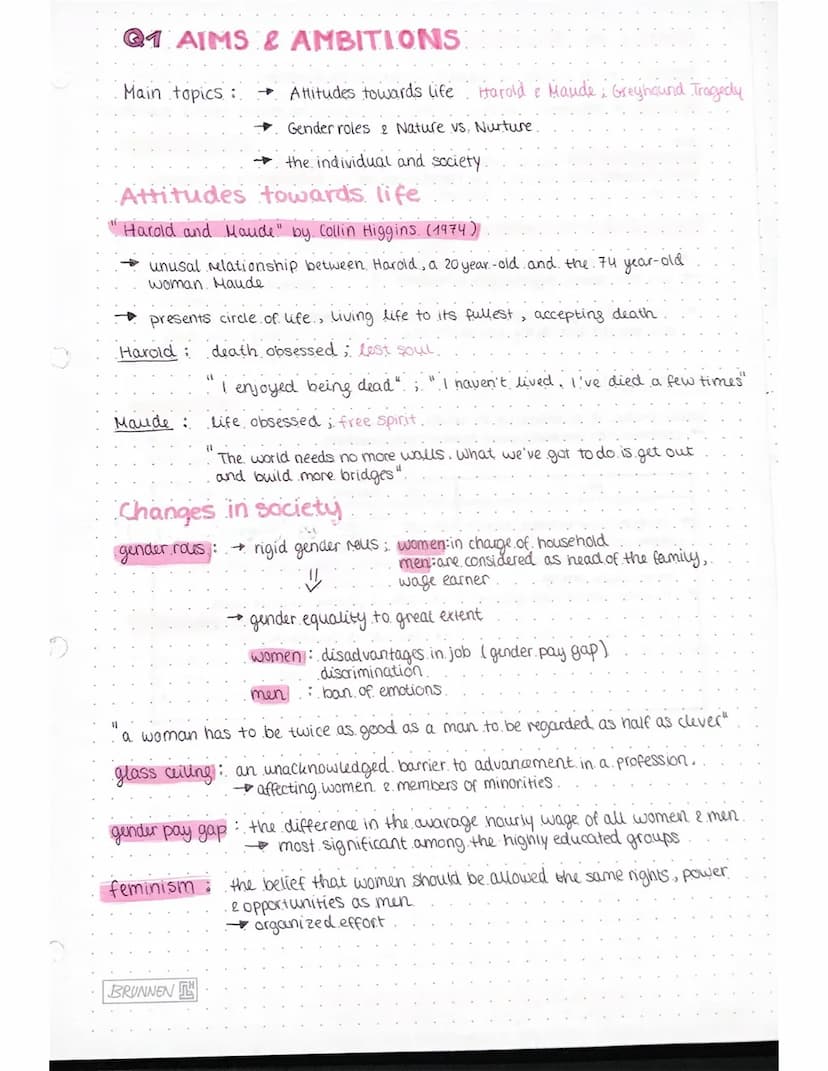 Q1 AIMS & AMBITIONS
Main topics : → Attitudes towards life Harold & Maude ; Greyhound Tragedy
→ Gender roles & Nature vs. Nurture
→ the individual and society
Attitudes towards life
"Harold and Maude" by Collin Higgins (1974)
→ unusal relationship between Harold, a 20 year-old and the 74 year-old
woman Maude
→ presents circle of life, living life to its fullest, accepting death
Harold : death obsessed ; lost soul
"I enjoyed being dead" ; "I haven't lived, I've died a few times"
Maude : life obsessed ; free spirit
"The world needs no more walls. What we've got to do is get out
and build more bridges"
Changes in society
gender rous : → rigid gender rous ; women: in charge of household
men: are considered as head of the family,
wage earner
⇓
→ gender equality to great extent
women : disadvantages in job (gender pay gap)
discrimination
men : ban of emotions
"a woman has to be twice as good as a man to be regarded as half as clever"
glass ceiling : an unacknowledged barrier to advancement in a profession.
→ affecting women & members of minorities
gender pay gap : the difference in the avarage hourly wage of all women & men
→ most significant among the highly educated groups
feminism : the belief that women should be allowed the same rights, power
& opportunities as men
→ organized effort
BRUNNEN